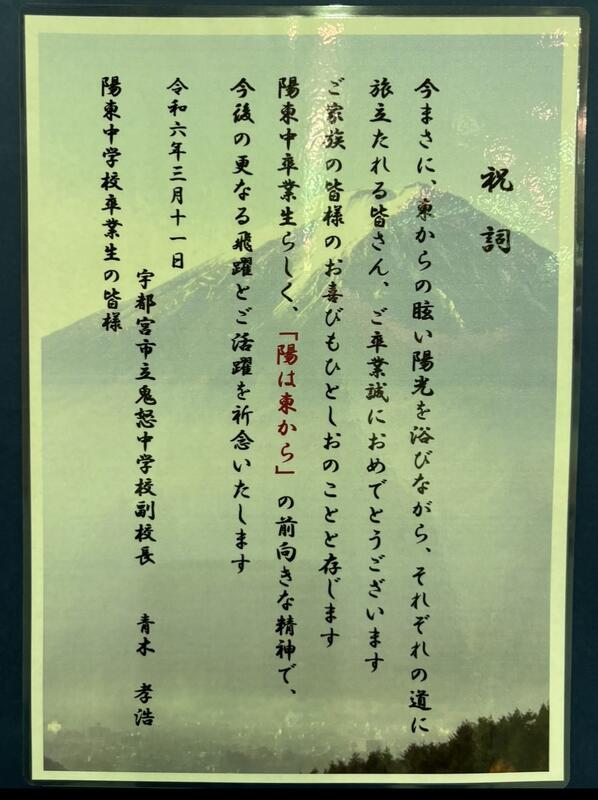 祝詞
今まさに、東からの眩い陽光を浴びながら、それぞれの道に
旅立たれる皆さん、ご卒業誠におめでとうございます
ご家族の皆様のお喜びもひとしおのことと存じます
陽東中卒業生らしく、「陽は東から」の前向きな精神で、
今後の更なる飛躍とご活躍を祈念いたします
令和六年三月十一日
宇都宮市立鬼怒中学校副校長 青木 孝浩
陽東中学校卒業生の皆様